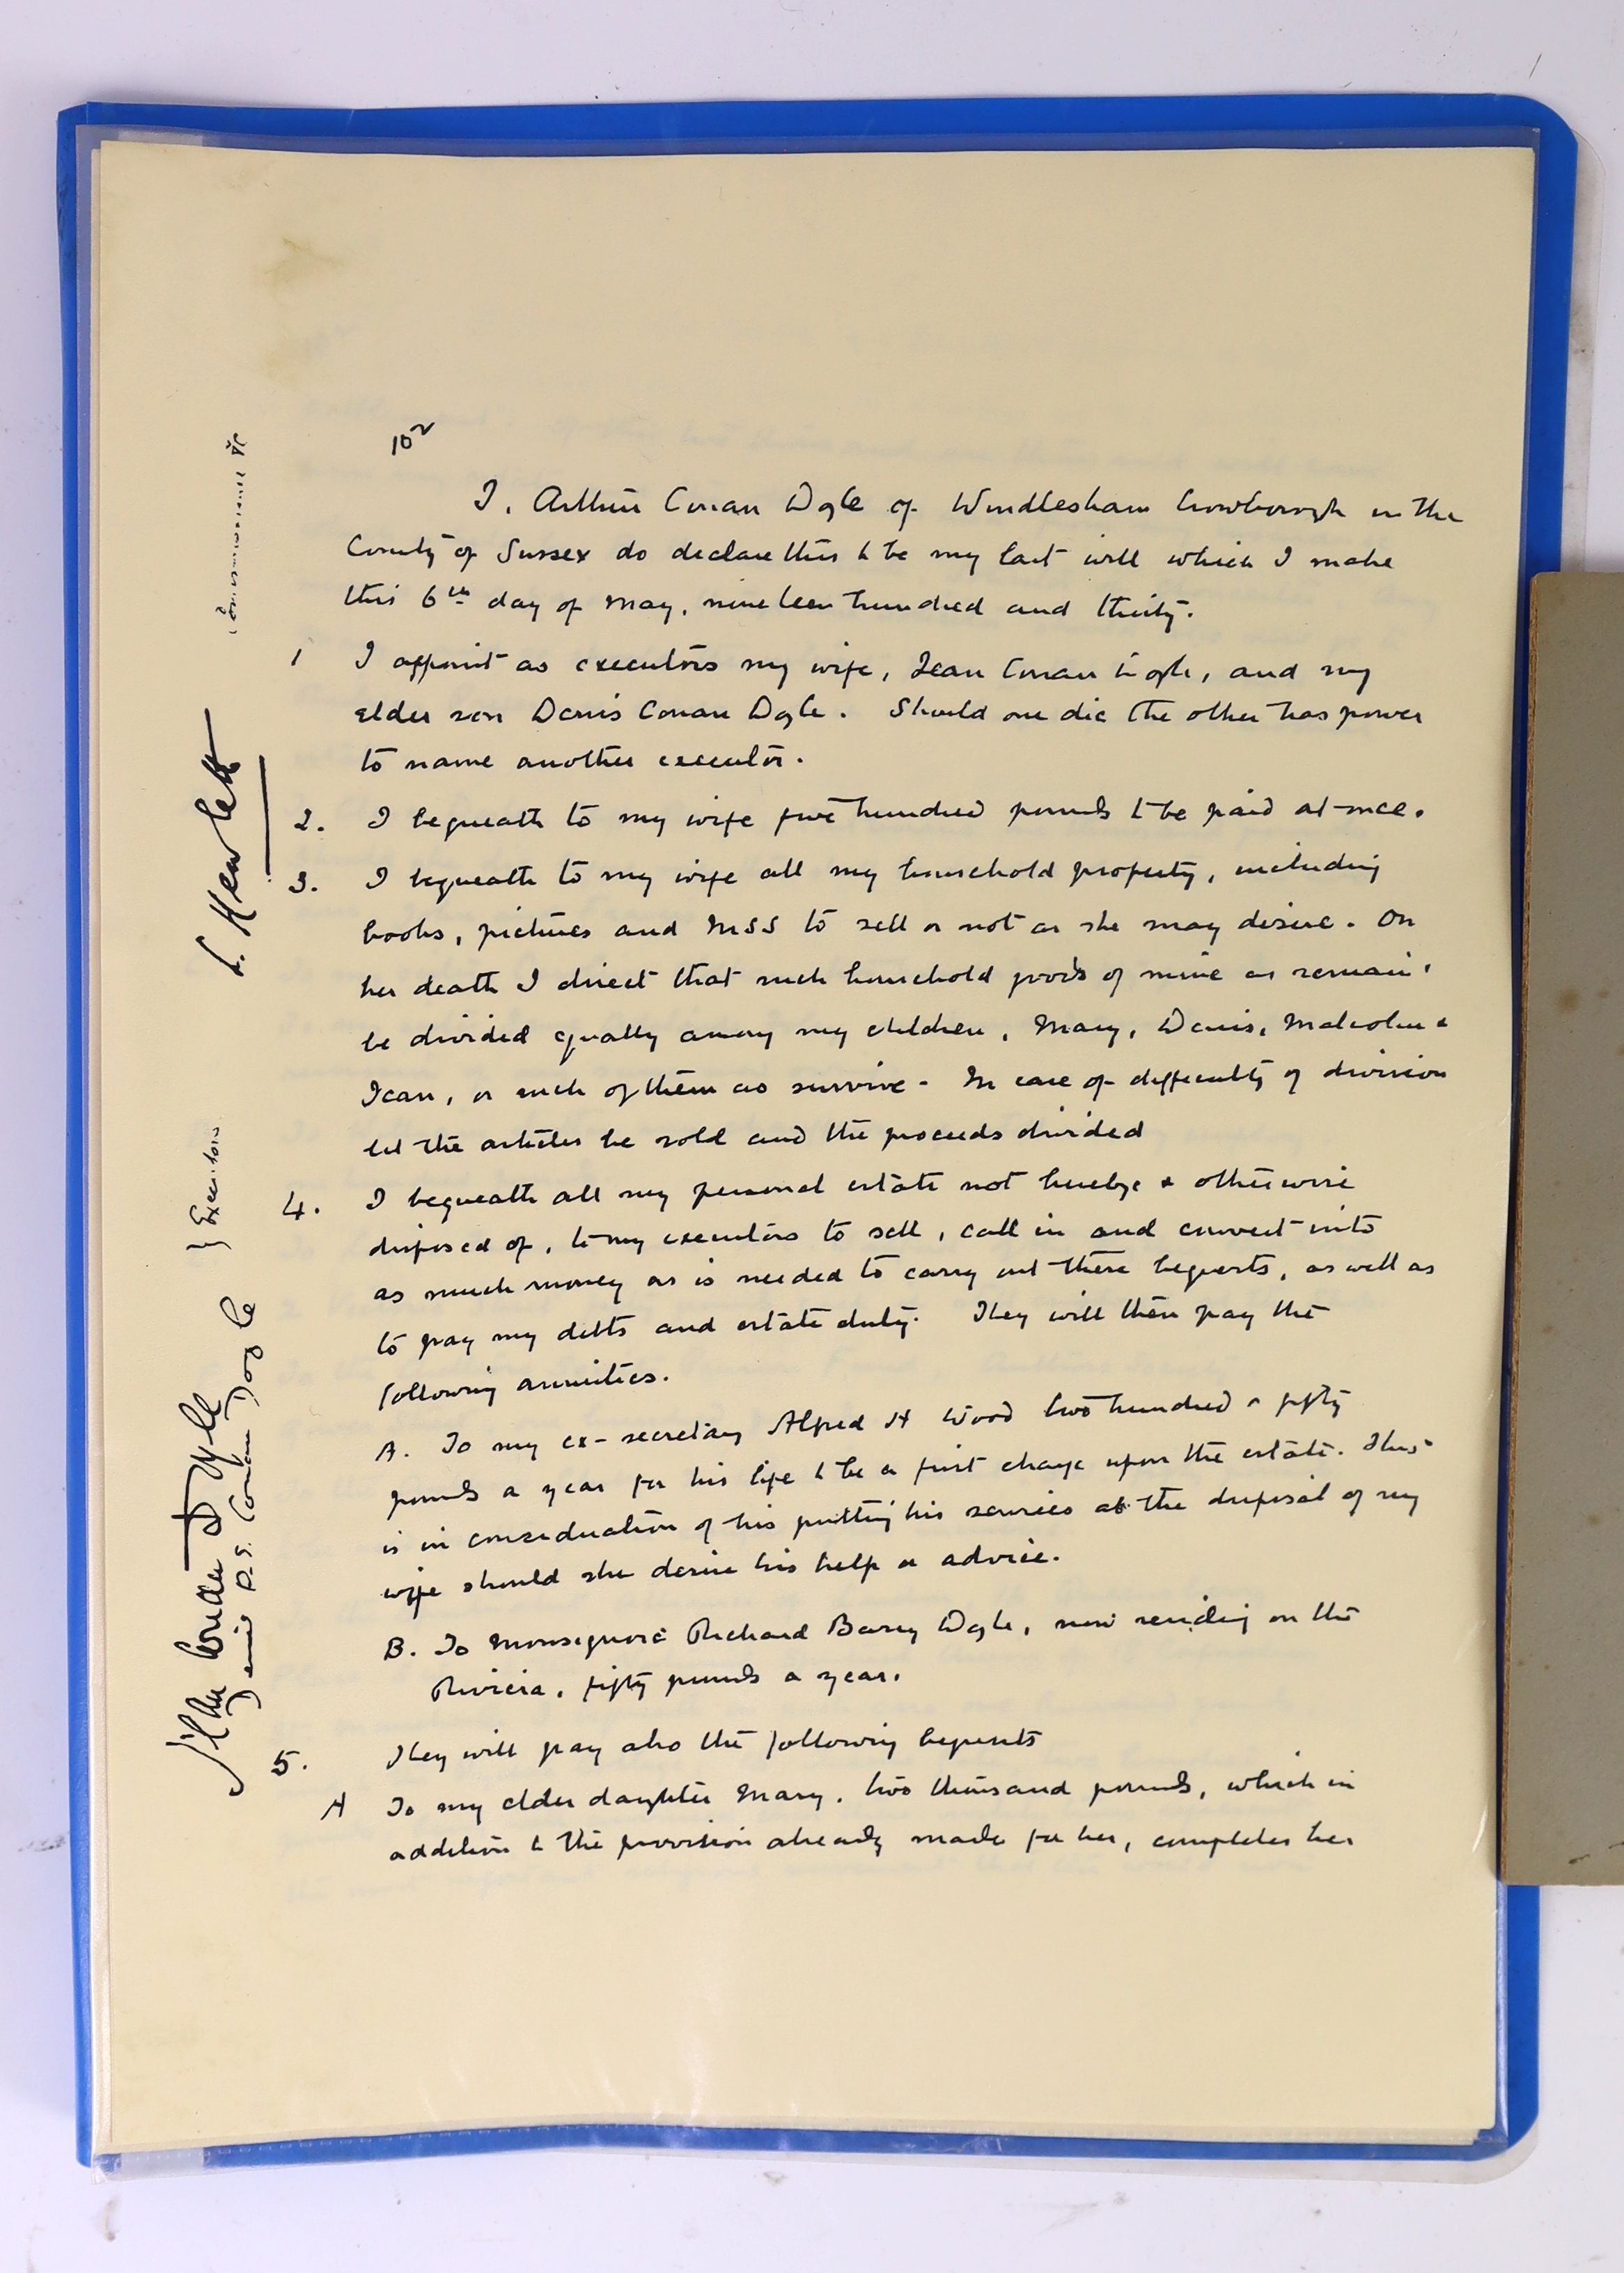 10²
I, Arthur Conan Doyle of Windlesham Crowborough in the
County of Sussex do declare this to be my last will which I make
this 6th day of May, nineteen hundred and thirty.
1 I appoint as executors my wife, Jean Conan Doyle, and my
elder son Denis Conan Doyle. Should one die the other has power
to name another executor.
2. I bequeath to my wife five hundred pounds to be paid at once.
3. I bequeath to my wife all my household property, including
books, pictures and MSS to sell or not as she may desire. On
her death I direct that such household goods of mine as remain,
be divided equally among my children, Mary, Denis, Malcolm &
Jean, or such of them as survive. In case of difficulty of division
let the articles be sold and the proceeds divided
4. I bequeath all my personal estate not hereby & otherwise
disposed of, to my executors to sell, call in and convert into
as much money as is needed to carry out these bequests, as well as
to pay my debts and estate duty. They will then pay the
following annuities.
A. To my ex-secretary Alfred H Wood two hundred & fifty
pounds a year for his life to be a first charge upon the estate. This
is in consideration of his putting his services at the disposal of my
wife should she desire his help or advice.
B. To Monsignore Richard Barry Doyle, now residing on the
Riviera, fifty pounds a year.
5. They will pay also the following bequests
A To my elder daughter Mary, two thousand pounds, which in
addition to the provision already made for her, completes her
Denis P.S. Conan Doyle
} Executors
Commissioner